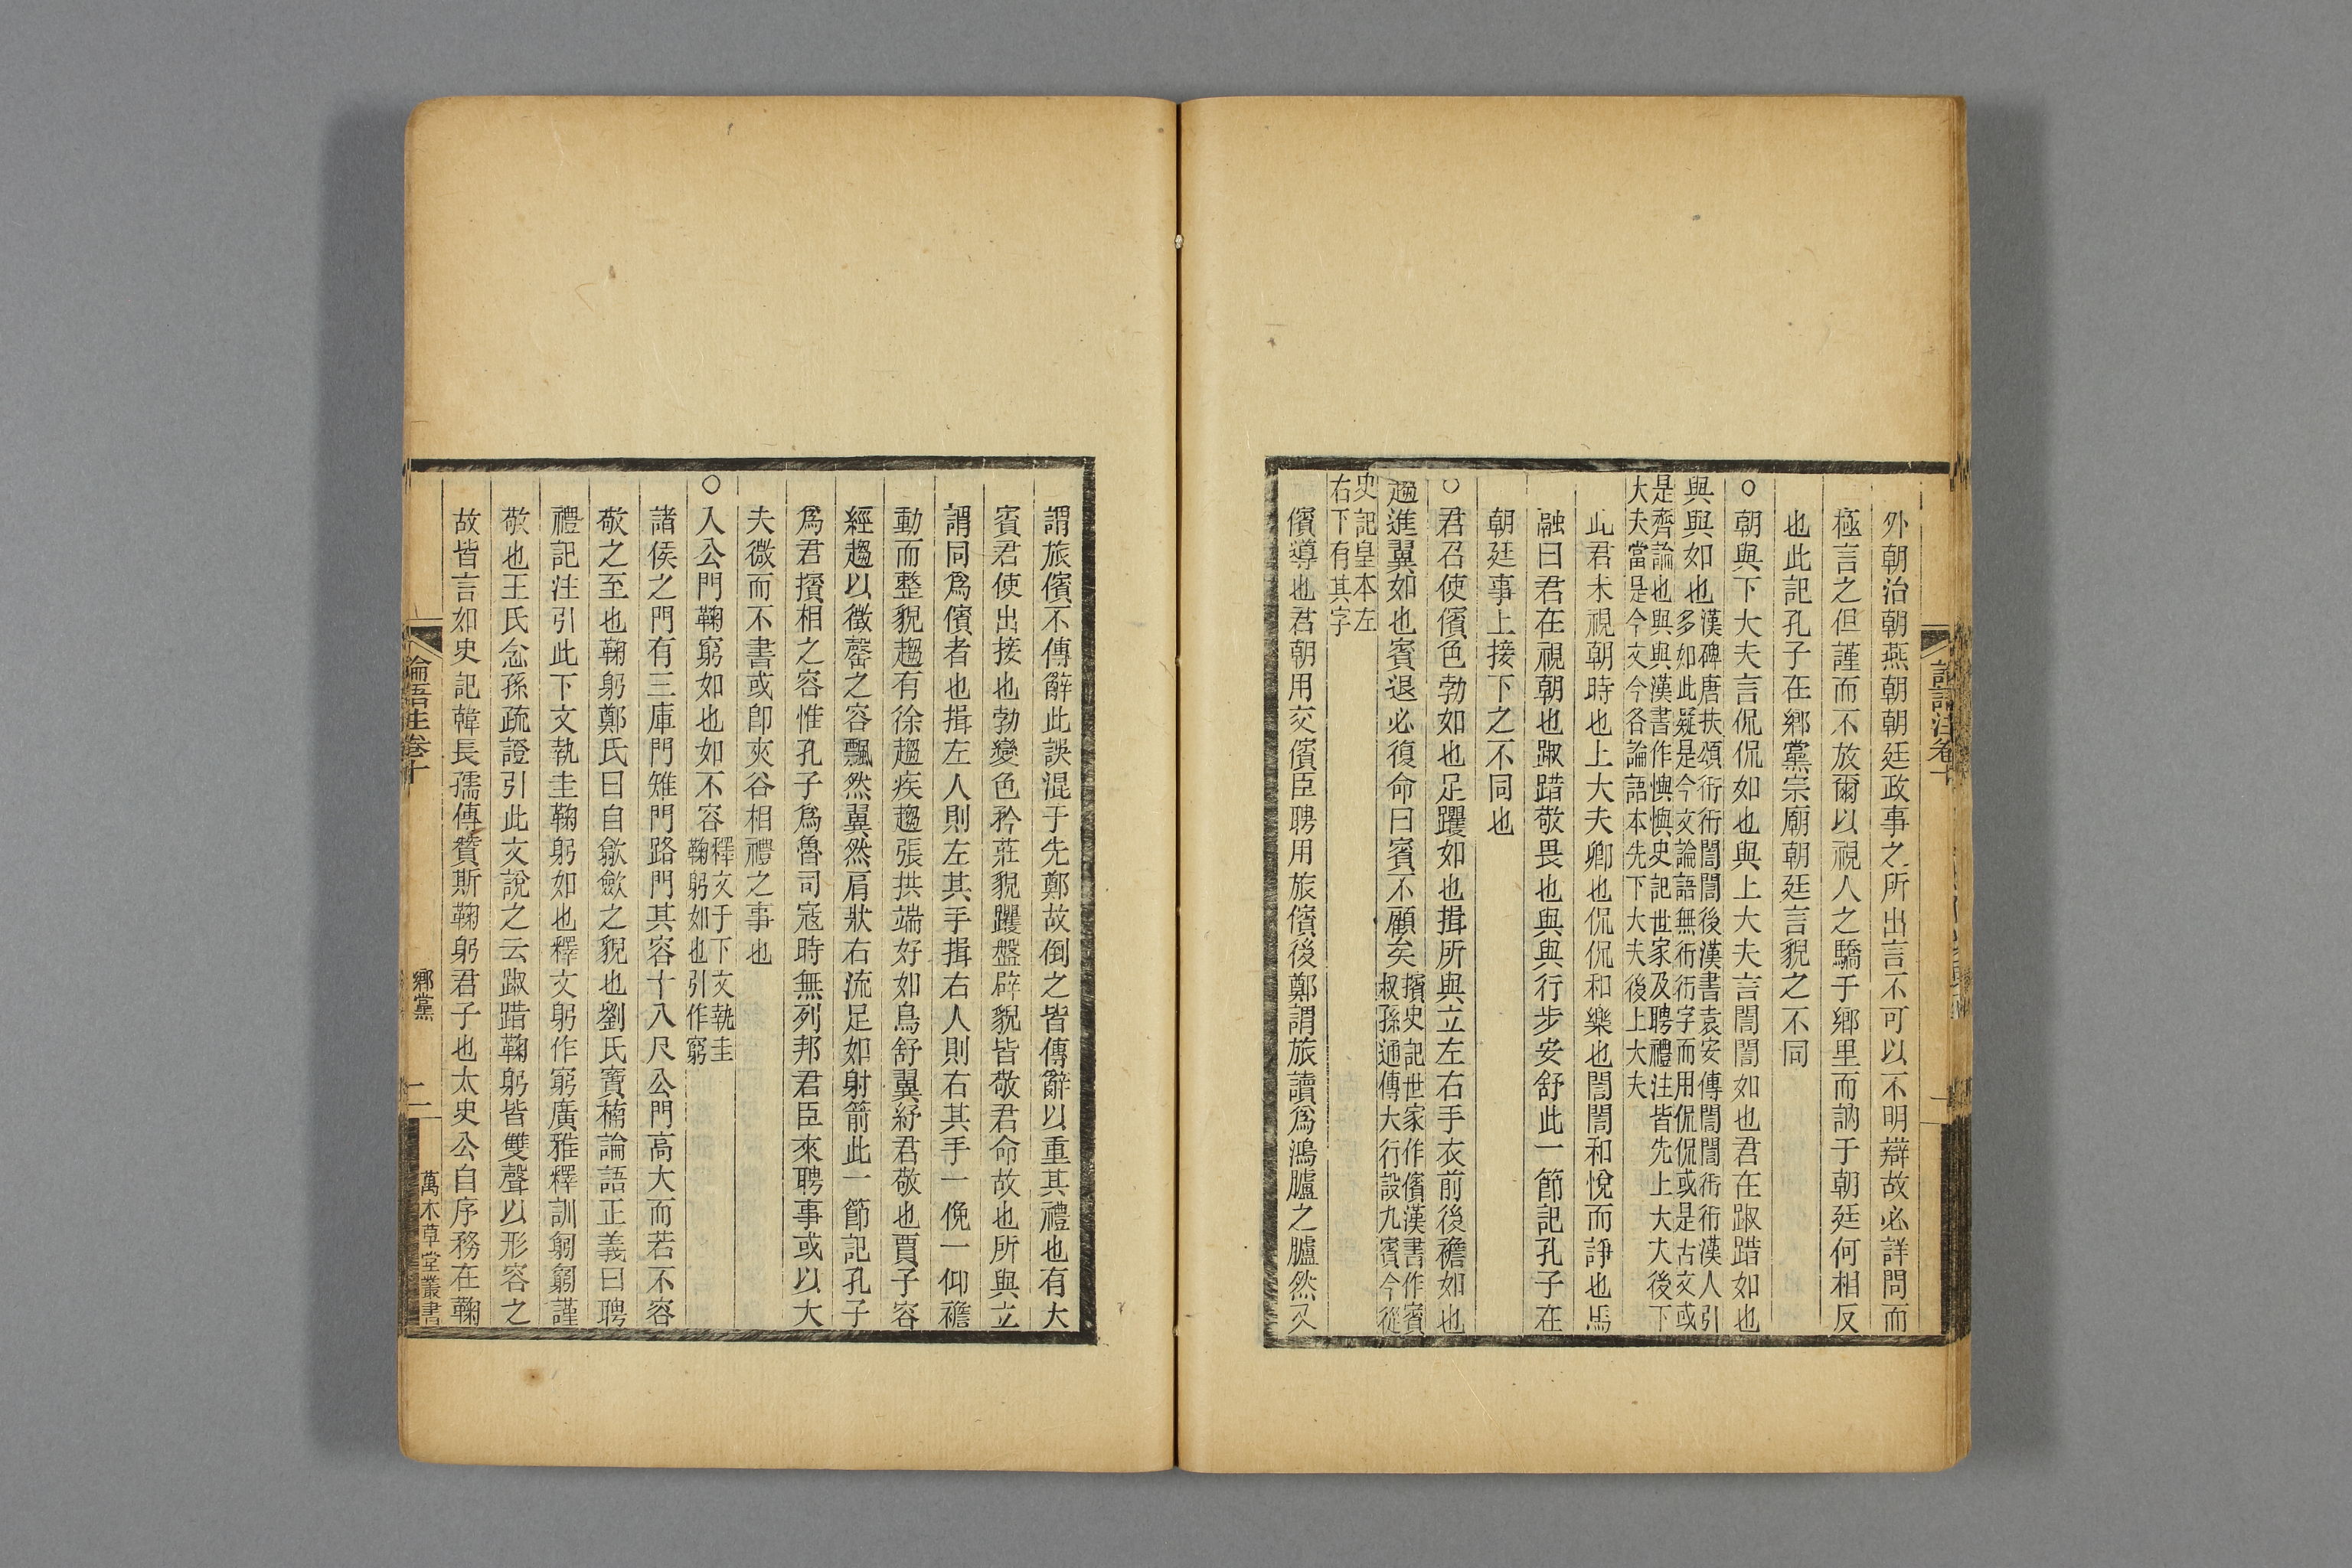 外朝治朝燕朝朝廷政事之所出言不可以不明辯故必詳問而
極言之但謹而不放爾以視人之驕于鄉里而訥于朝廷何相反
也此記孔子在鄉黨宗廟朝廷言貌之不同
○朝與下大夫言侃侃如也與上大夫言誾誾如也君在踧踖如也
與與如也漢碑唐扶頌衎衎誾誾後漢書袁安傳誾誾衎衎漢人引
多如此疑是今文論語無衎衎字而用侃侃或是古文或
是齊論也與與漢書作懊懊史記世家及聘禮注皆先上大夫後下
大夫當是今文今各論語本先下大夫後上大夫
此君未視朝時也上大夫卿也侃侃和樂也誾誾和悅而諍也馬
融曰君在視朝也踧踖敬畏也與與行步安舒此一節記孔子在
朝廷事上接下之不同也
○君召使儐色勃如也足躩如也揖所與立左右手衣前後襜如也
趨進翼如也賓退必復命曰賓不顧矣擯史記世家作儐漢書作賓
叔孫通傳大行設九賓今從
史記皇本左
右下有其字
儐導也君朝用交儐臣聘用旅儐後鄭謂旅讀爲鴻臚之臚然又
謂旅儐不傳辭此誤混于先鄭故倒之皆傳辭以重其禮也有大
賓君使出接也勃變色矜莊貌躩盤辟貌皆敬君命故也所與立
謂同爲儐者也揖左人則左其手揖右人則右其手一俛一仰襜
動而整貌趨有徐趨疾趨張拱端好如鳥舒翼紓君敬也賈子容
經趨以微罄之容飄然翼然肩狀右流足如射箭此一節記孔子
爲君擯相之容惟孔子爲魯司寇時無列邦君臣來聘事或以大
夫微而不書或卽夾谷相禮之事也
○入公門鞠窮如也如不容釋文于下文執圭
鞠躬如也引作窮
諸侯之門有三庫門雉門路門其容十八尺公門高大而若不容
敬之至也鞠躬鄭氏曰自歙歛之貌也劉氏寶楠論語正義曰聘
禮記注引此下文執圭鞠躬如也釋文躬作窮廣雅釋訓匑匑謹
敬也王氏念孫疏證引此文說之云踧踖鞠躬皆雙聲以形容之
故皆言如史記韓長孺傳贊斯鞠躬君子也太史公自序務在鞠
論語注卷十
鄉黨
二
萬木草堂叢書